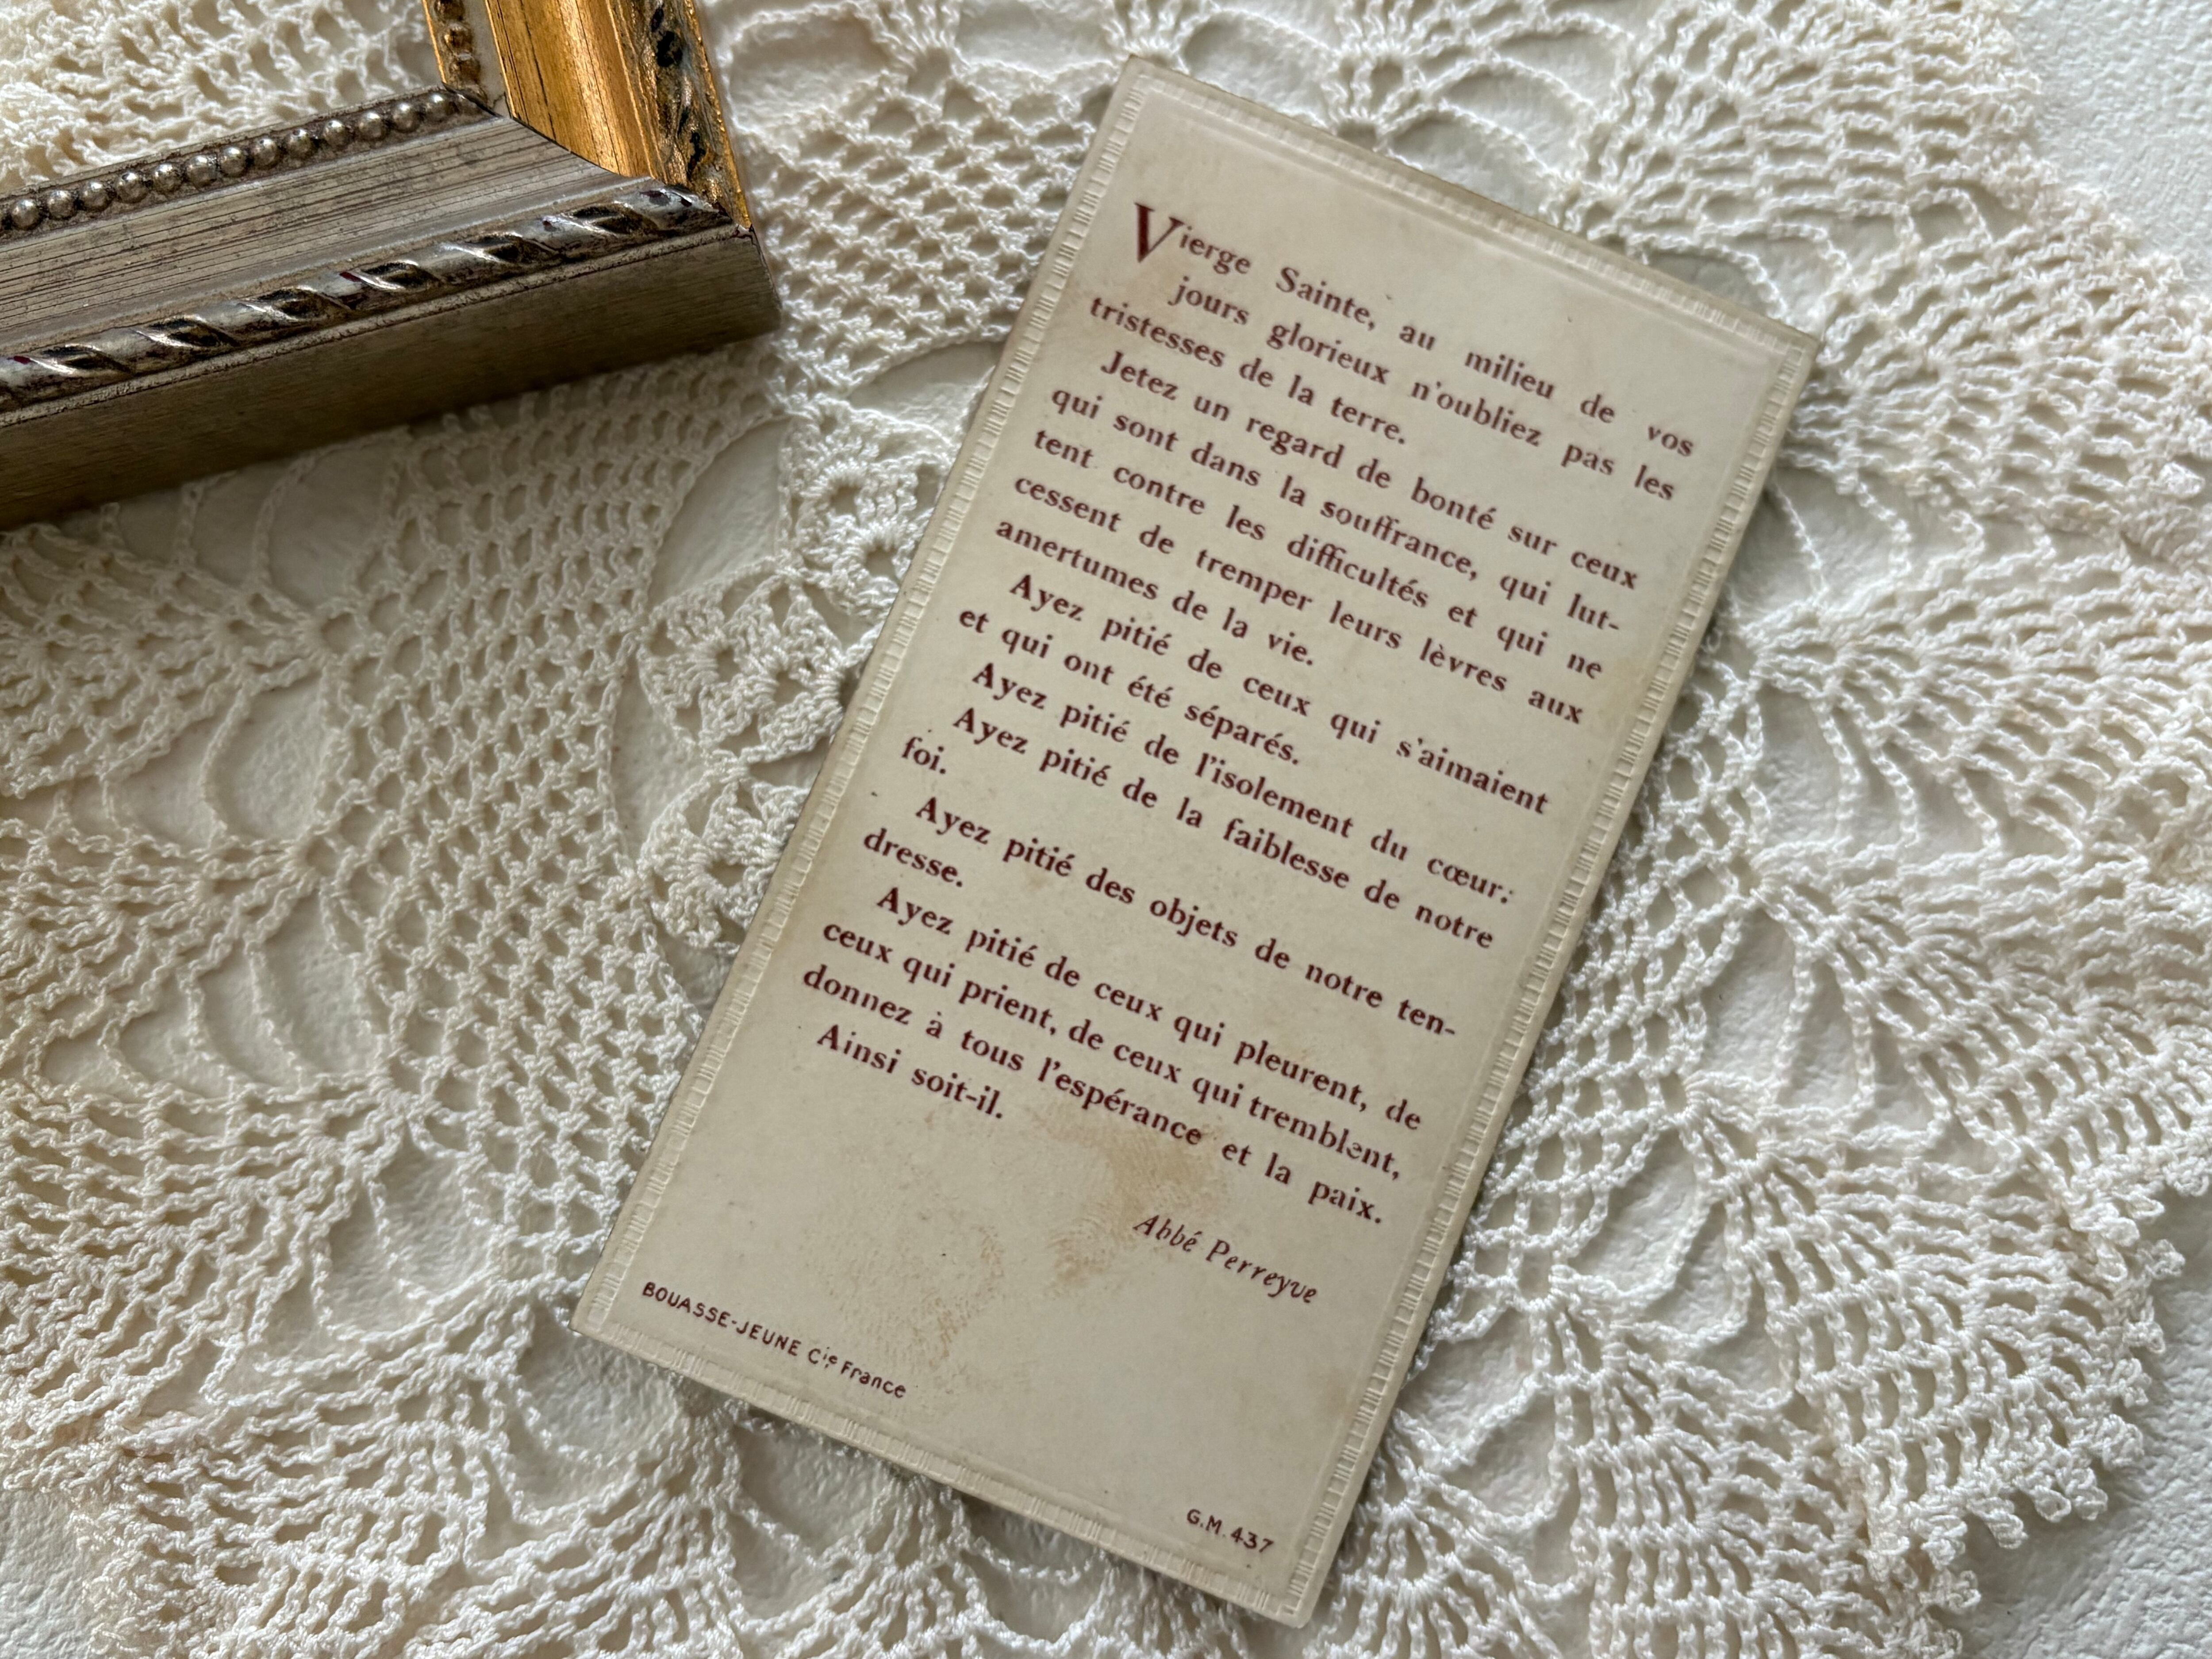 Vierge Sainte, au milieu de vos
jours glorieux n'oubliez pas les
tristesses de la terre.
Jetez un regard de bonté sur ceux
qui sont dans la souffrance, qui lut-
tent contre les difficultés et qui ne
cessent de tremper leurs lèvres aux
amertumes de la vie.
Ayez pitié de ceux qui s'aimaient
et qui ont été séparés.
Ayez pitié de l'isolement du cœur.:
Ayez pitié de la faiblesse de notre
foi.
Ayez pitié des objets de notre ten-
dresse.
Ayez pitié de ceux qui pleurent, de
ceux qui prient, de ceux qui tremblent,
donnez à tous l'espérance et la paix.
Ainsi soit-il.
Abbé Perreyve
BOUASSE-JEUNE Cie France
G.M. 437